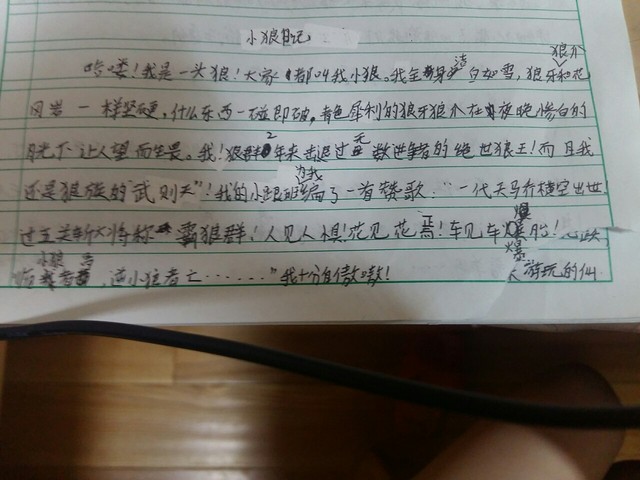 小狼日记
哈喽！我是一头狼！大家都叫我小狼。我全身洁白如雪，狼牙和花
岗岩一样坚硬，什么东西一碰即破，犀利的狼牙狼爪在夜晚惨白的
月光下让人望而生畏。我！狼群2年来击退过无数进攻者的绝世狼王！而且我
还是狼族的"武则天"！我的小跟班为我编了一首赞歌："一代天马行横空出世，
过五关斩六将称霸狼群！人见人惧！花见花焉！车见车爆胎！
小狼者，逆小狼者亡……"我十分自傲嗷！
游玩的